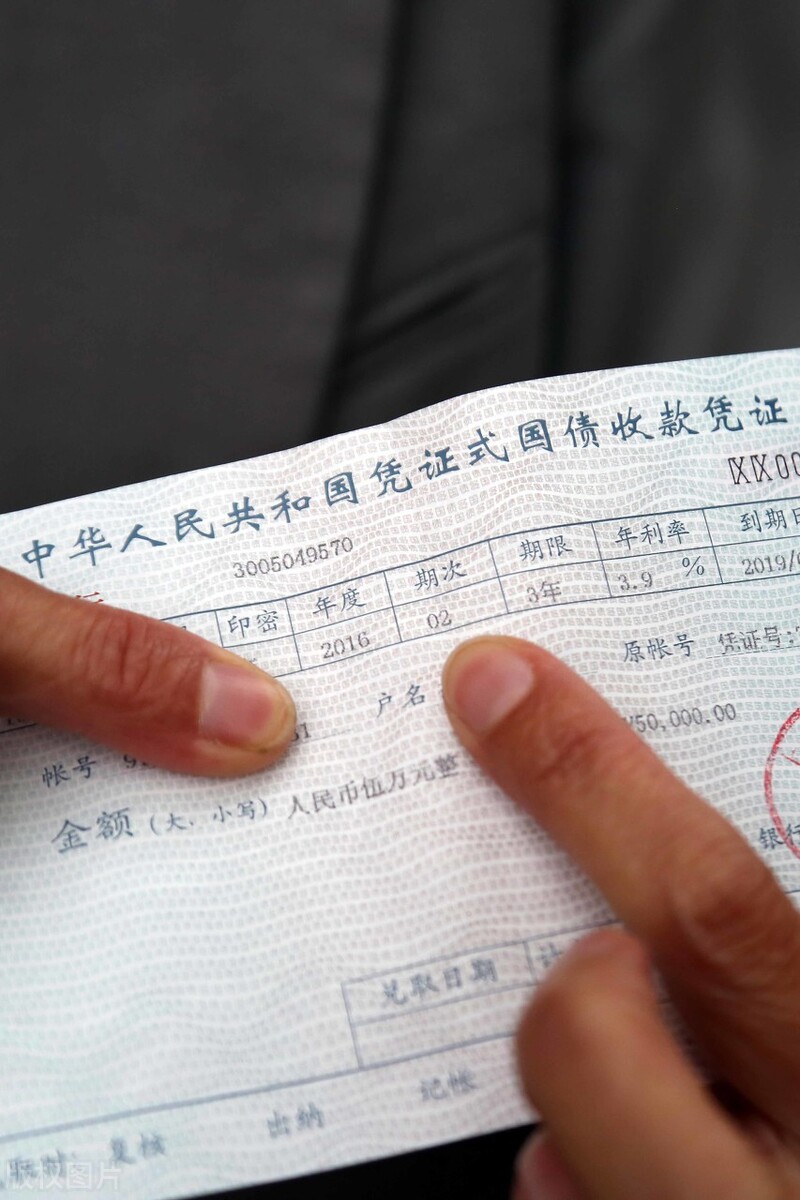 中华人民共和国凭证式国债收款凭证
3005049570
印密 年度 期次 期限 年利率 到期日
2016 02 3年 3.9 % 2019/
户名 原帐号 凭证号:
帐号 31 ¥50,000.00
金额(大、小写) 人民币伍万元整
银行
兑取日期
复核 出纳 记帐
版权图片